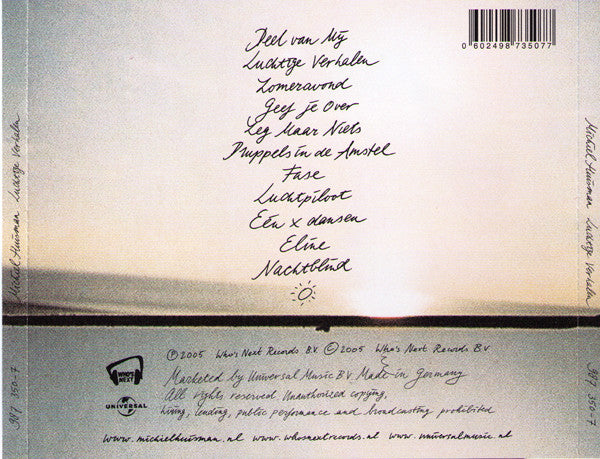 Deel van Mij
Luchtige Verhalen
Zomeravond
Geef je Over
Leg Maar Niets
Druppels in de Amstel
Fase
Luchtpiloot
Eén x dansen
Eline
Nachtblind
0 602498 735077
Michiel Huisman Luchtige Verhalen
987 350-7
Michiel Huisman Luchtige Verhalen
987 350-7
WHO'S NEXT
UNIVERSAL
℗2005 Who's Next Records B.V. ©2005 Who's Next Records B.V
Marketed by Universal Music B.V. Made in Germany
All rights reserved Unauthorized copying,
hiring, lending, public performance and broadcasting prohibited
www.michielhuisman.nl www.whosnextrecords.nl www.universalmusic.nl